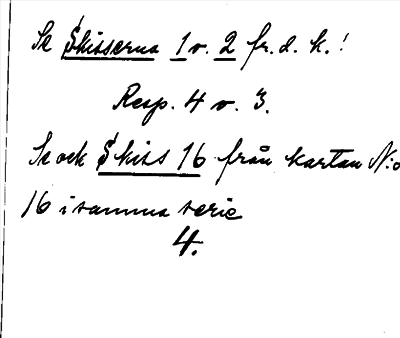 Se Skisserna 1 v. 2 fr. d. k.!
Resp. 4 v. 3.
Se ock Skiss 16 från kartan N:o
16 i samma serie
4.